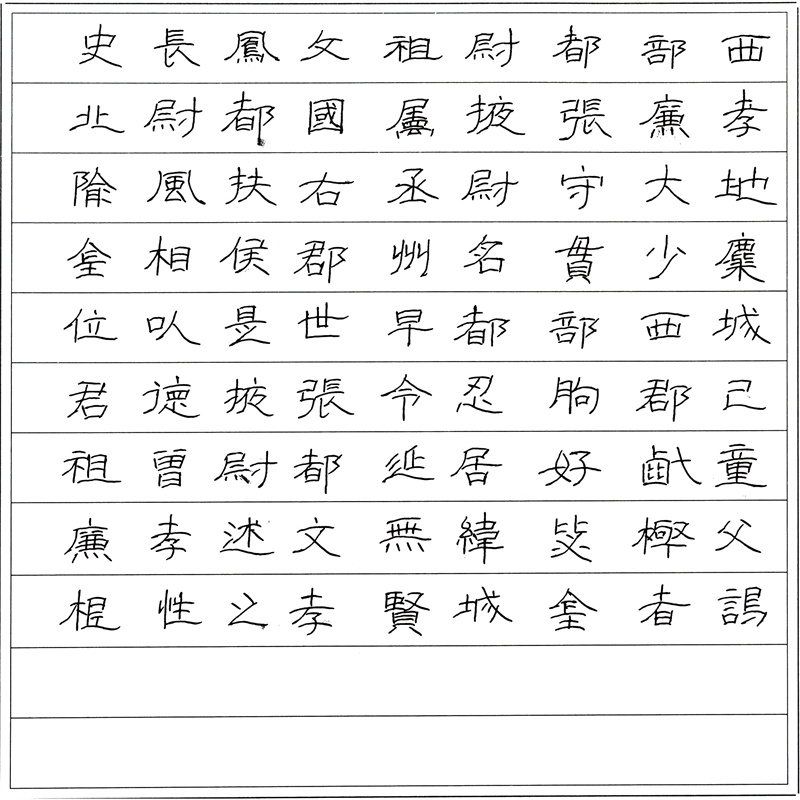 西部都尉祖父鳳長史
孝廉張掖屬國都尉北
地大守尉丞右扶風隃
麋少貫名州郡侯相金
城西部都早世是以位
己郡朐忍令張掖德君
童齔好居延都尉曾祖
父極毖緯無文述孝廉
謁者金城賢孝之性根